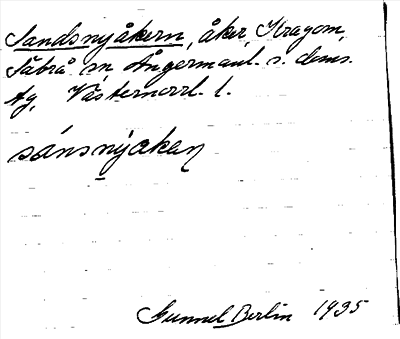 Sandsnyåkern, åker, Kragom,
Säbrå sn Ångermanl. s. doms.
tg, Västernorrl. l.
sánsnyaken
Gunnel Berlin 1935